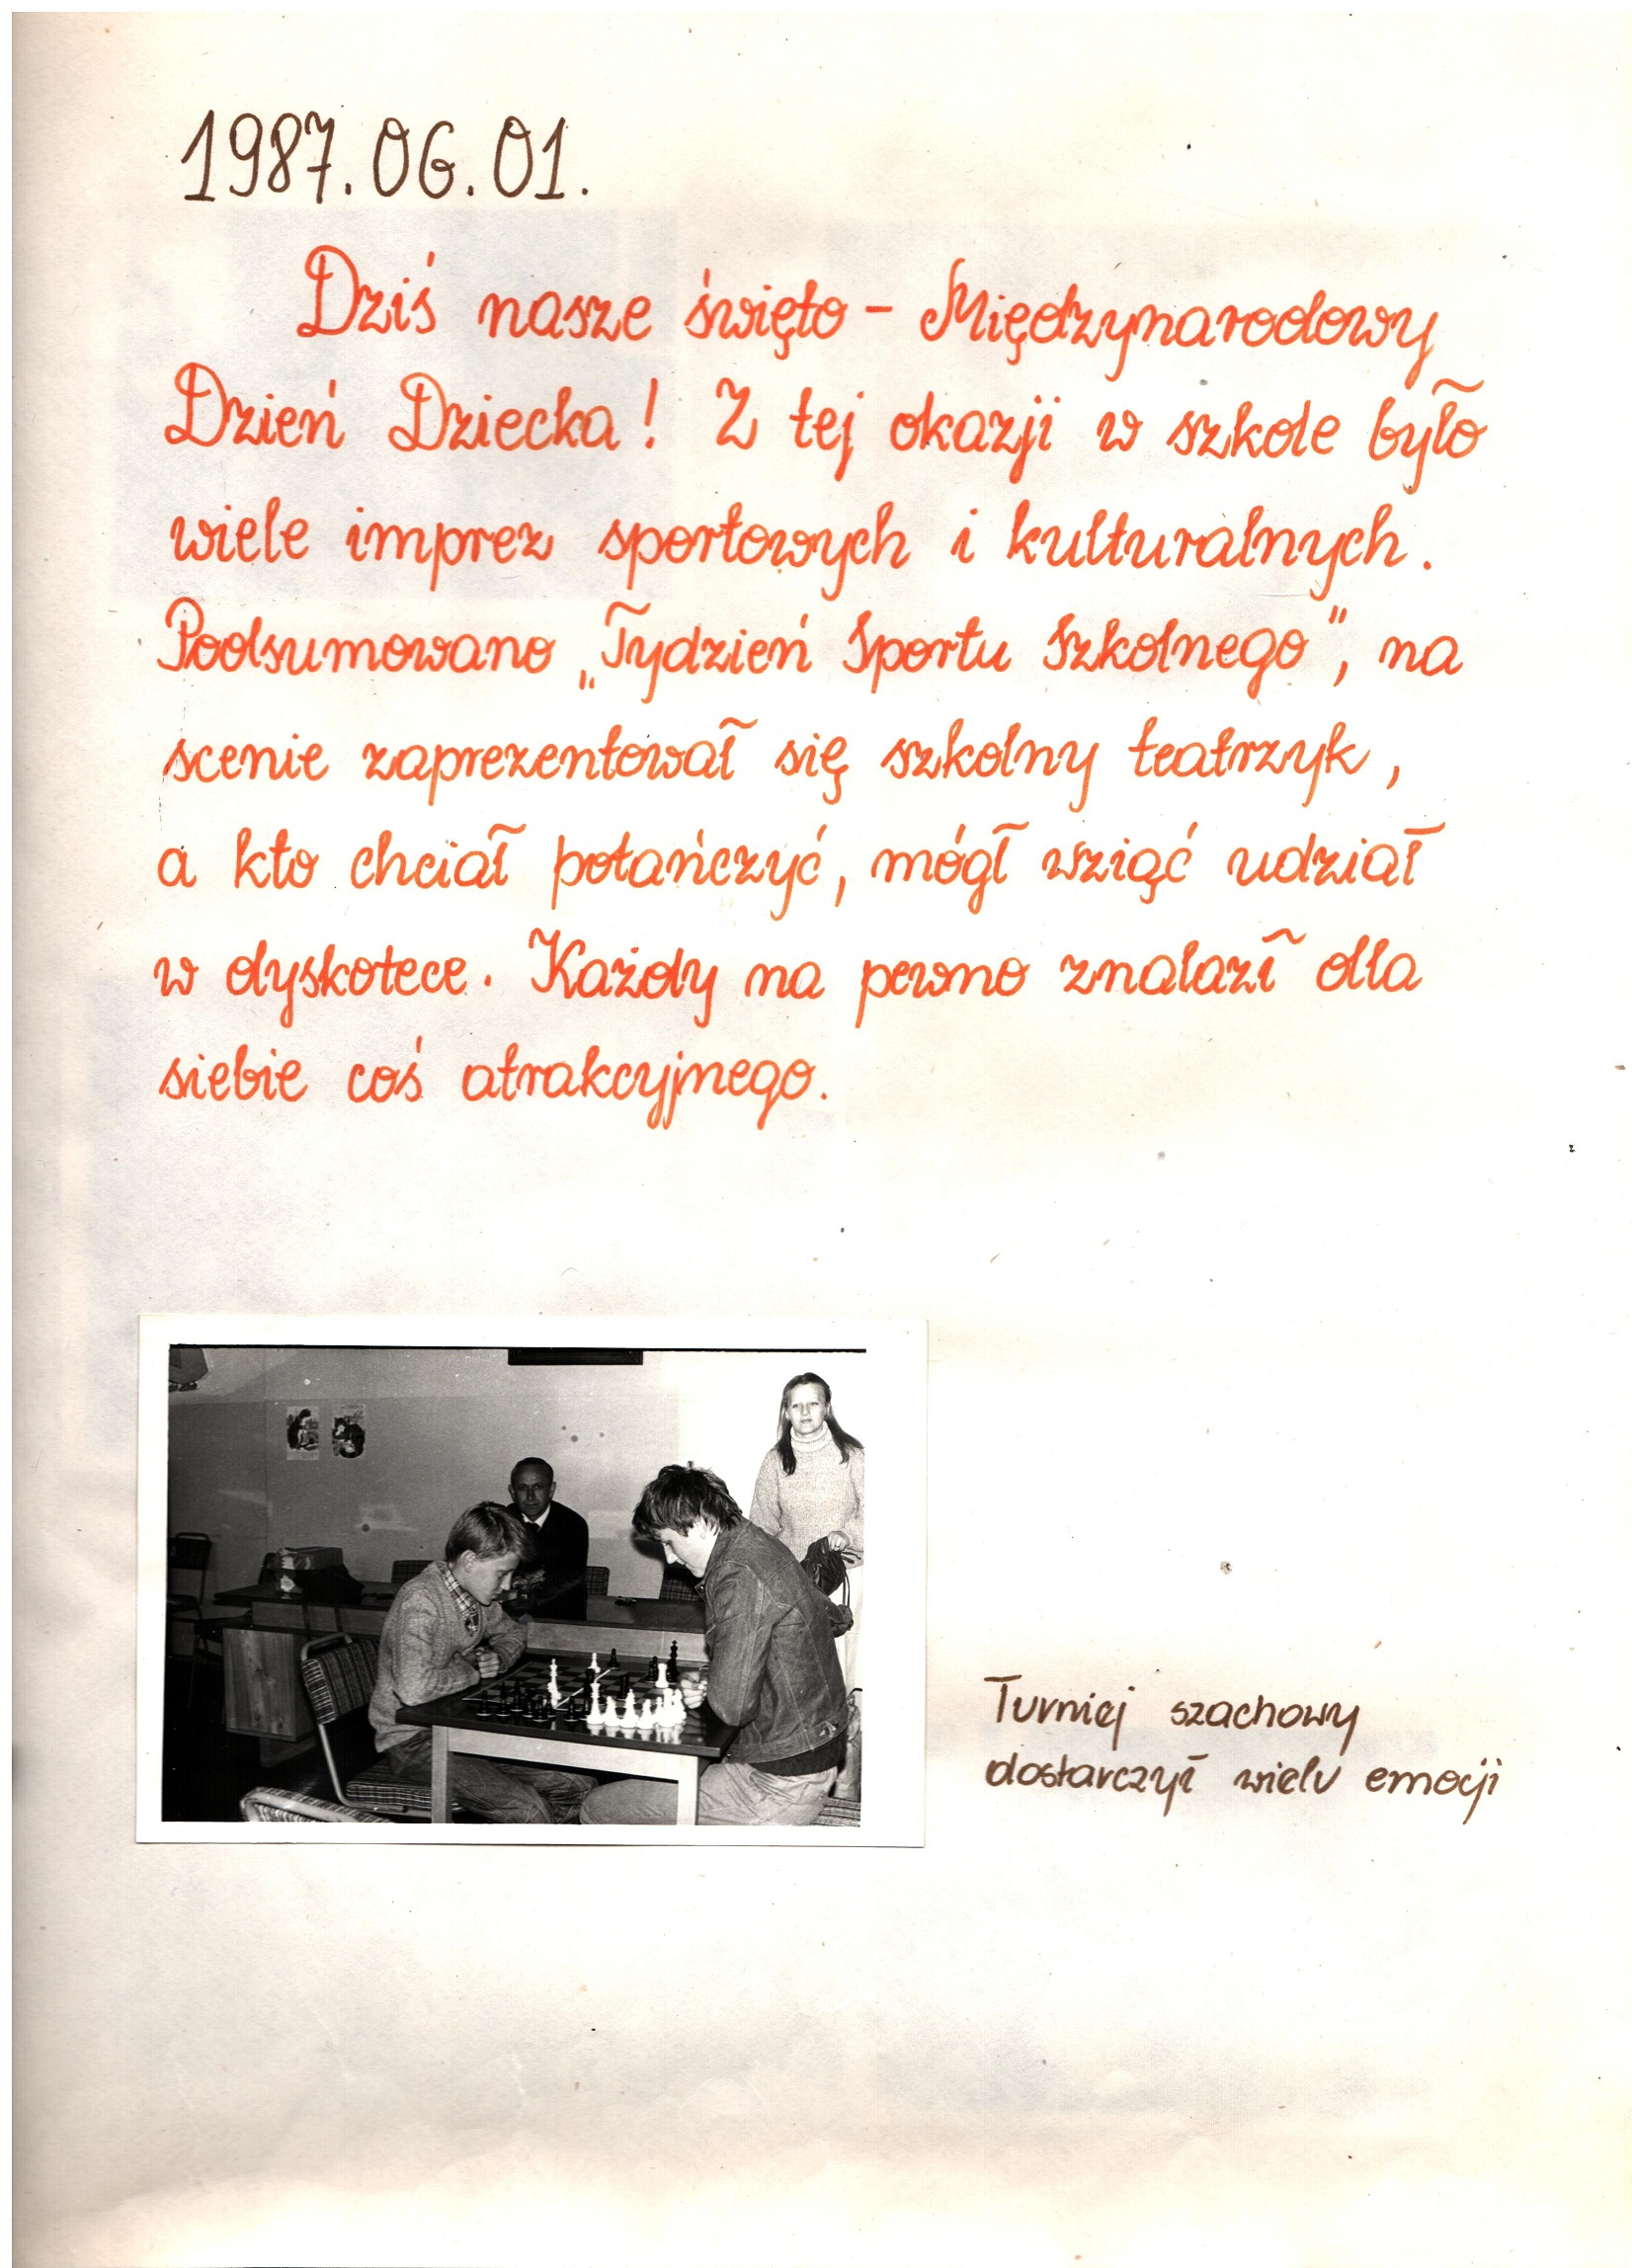 1987.06.01.
Dziś nasze święto - Międzynarodowy
Dzień Dziecka! Z tej okazji w szkole było
wiele imprez sportowych i kulturalnych.
Podsumowano „Tydzień Sportu Szkolnego”, na
scenie zaprezentował się szkolny teatrzyk,
a kto chciał potańczyć, mógł wziąć udział
w dyskotece. Każdy na pewno znalazł dla
siebie coś atrakcyjnego.
Turniej szachowy
dostarczył wielu emocji